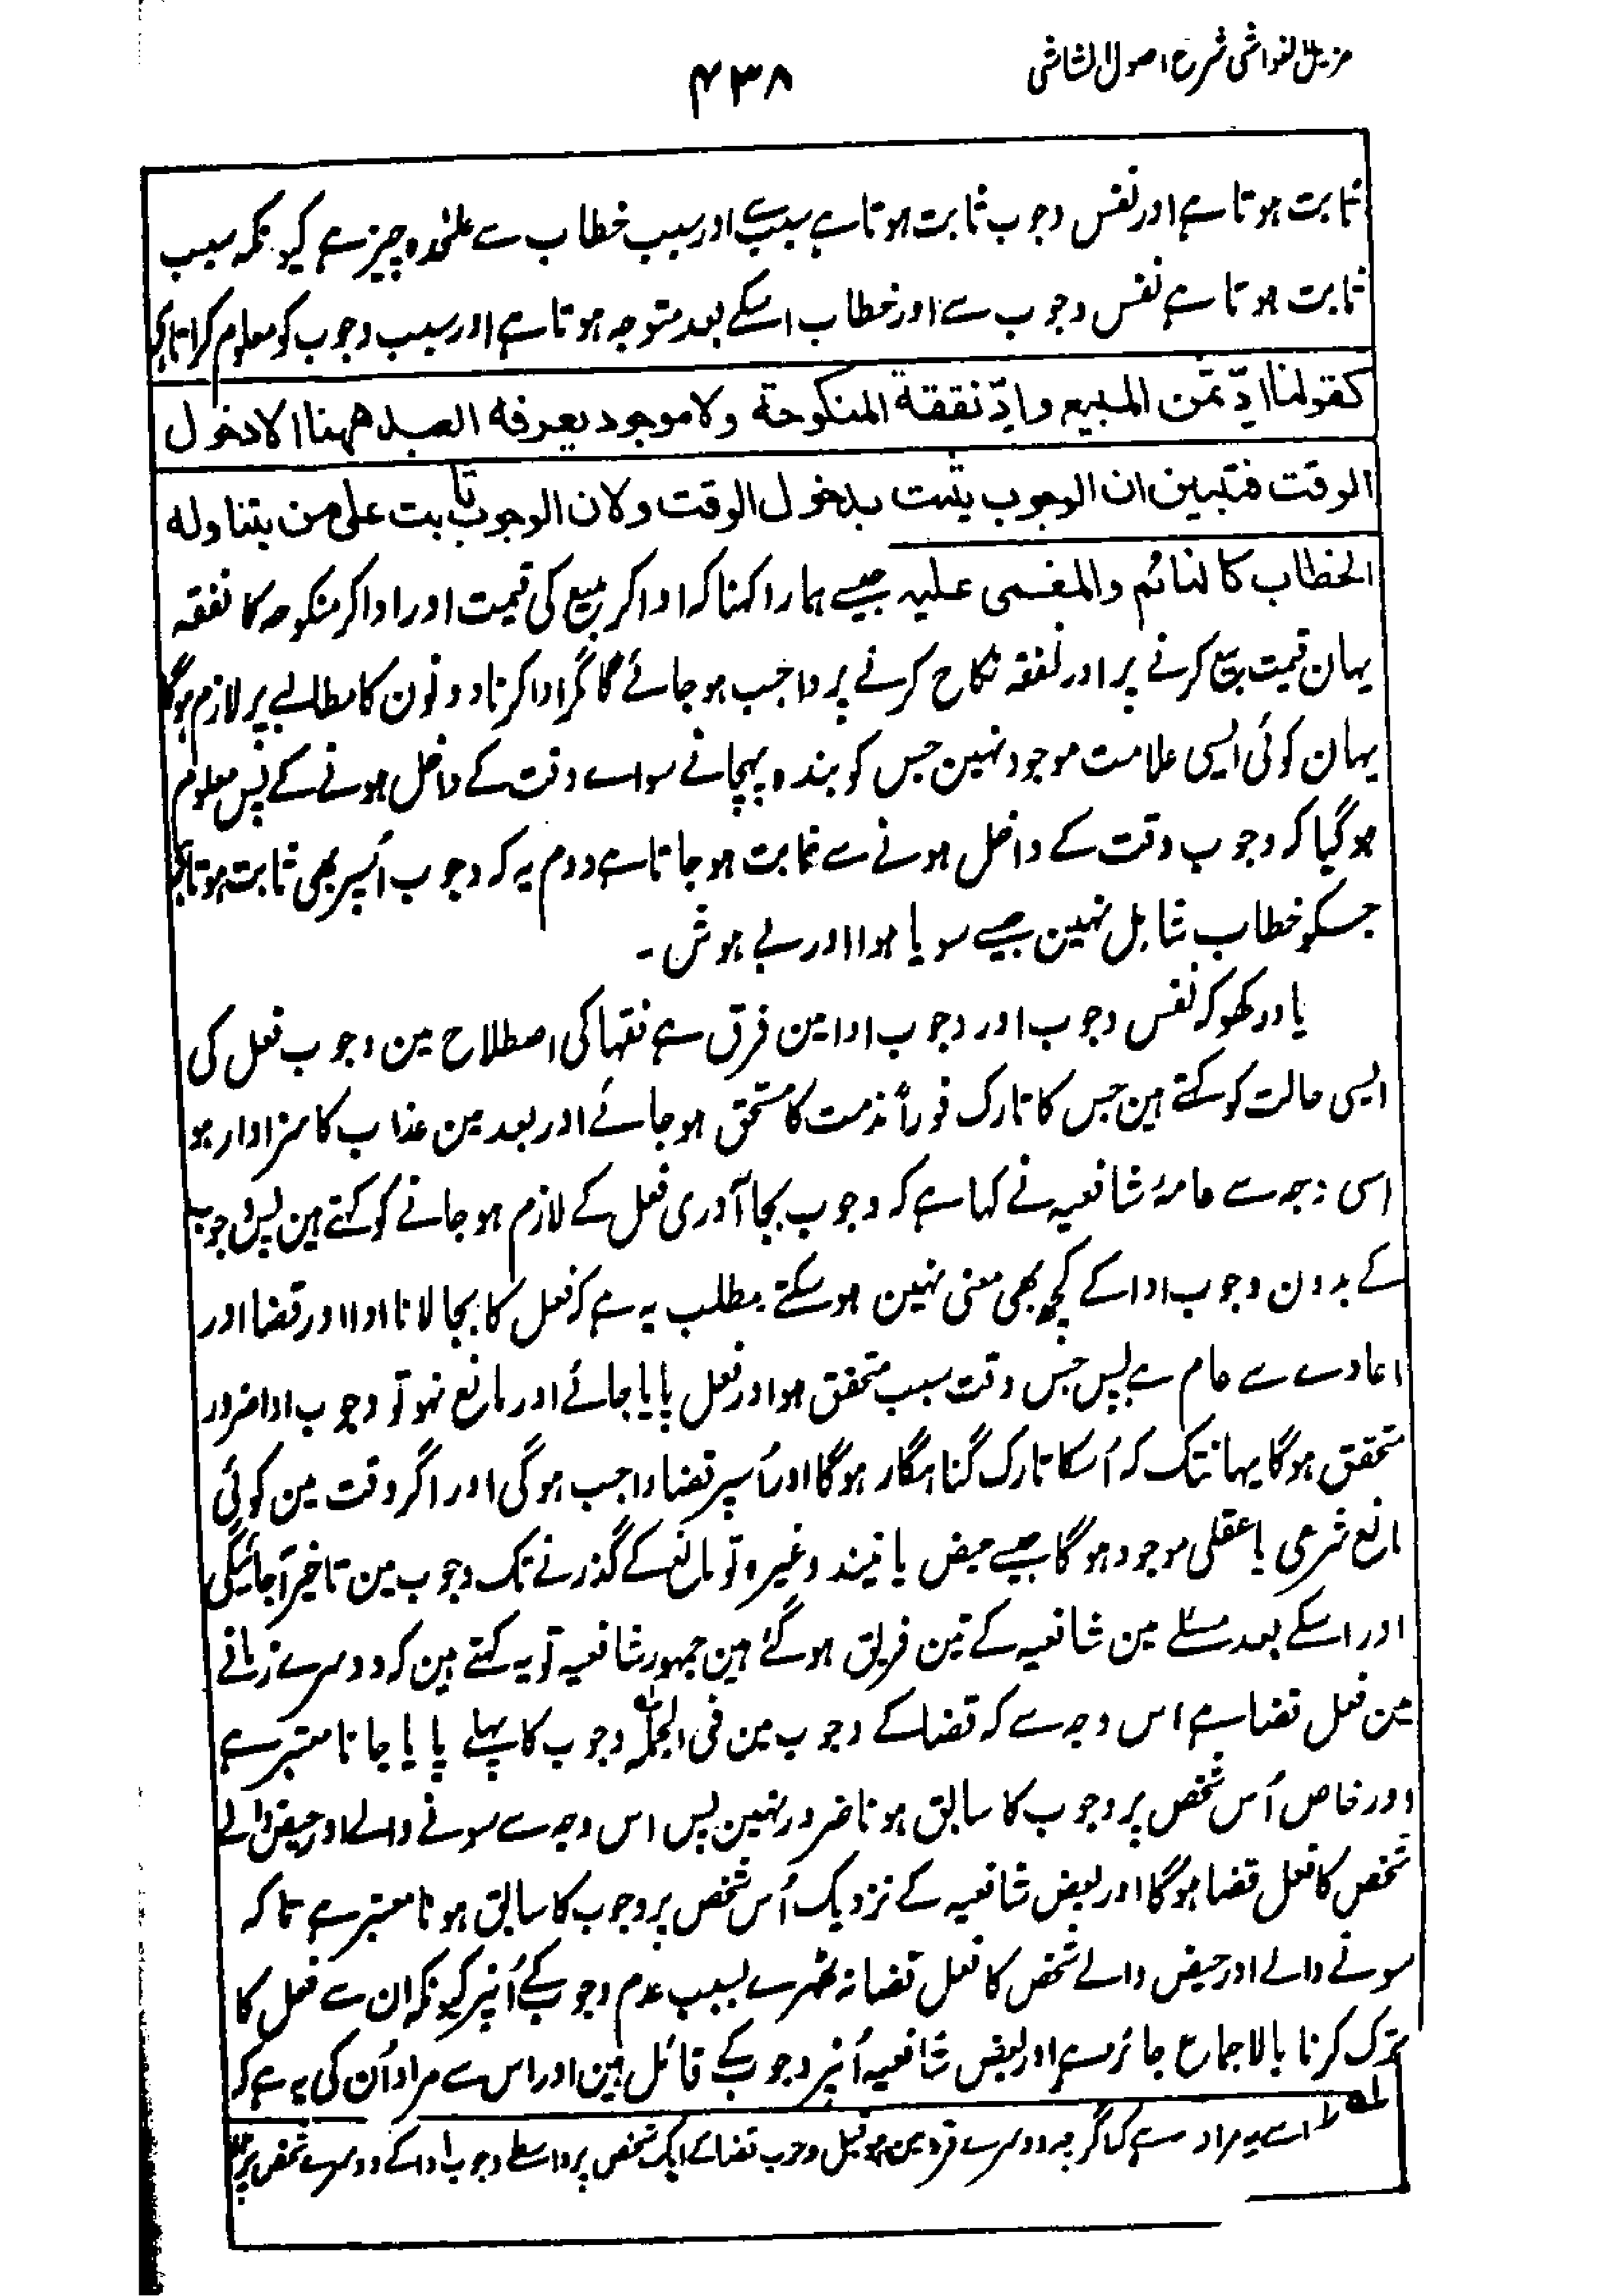 مزیل الغواشی شرح اصول الشاشی
۴۳۸
ثابت ہوتا ہے اور نفس وجوب ثابت ہوتا ہے سبب سے اور سبب خطاب سے علحدہ چیز ہے کیونکہ سبب
ثابت ہوتا ہے نفس وجوب سے اور خطاب اسکے بعد متوجہ ہوتا ہے اور سبب وجوب کو معلوم کراتا ہے
کقولنا ادّ ثمن المبیع وادّ نفقة المنکوحة ولا موجود یعرفه العبد ههنا الا دخول
الوقت فتبین ان الوجوب یثبت بدخول الوقت ولان الوجوب ثابت علی من یتناوله
الخطاب کالنائم والمغمی علیہ جیسے ہمارا کہنا کہ ادا کر مبیع کی قیمت اور ادا کر منکوحہ کا نفقہ
یہان قیمت بیع کرنے پر اور نفقہ نکاح کرنے پر واجب ہو جائے گا مگر ادا کرنا دونون کا مطالبے پر لازم ہوگا
یہان کوئی ایسی علامت موجود نہین جس کو بندہ پہچانے سواے وقت کے داخل ہونے کے پس معلوم
ہوگیا کہ وجوب وقت کے داخل ہونے سے ثابت ہو جاتا ہے دوم یہ کہ وجوب اُسپر بھی ثابت ہوتا ہے
جسکو خطاب شامل نہین جیسے سویا ہوا اور بے ہوش۔
یاد رکھو کہ نفس وجوب اور وجوب ادا مین فرق ہے فقہا کی اصطلاح مین وجوب فعل کی
ایسی حالت کو کہتے ہین جس کا تارک فوراً مذمت کا مستحق ہو جائے اور بعد مین عذاب کا سزاوار ہو
اسی وجہ سے عامۂ شافعیہ نے کہا ہے کہ وجوب بجاآوری فعل کے لازم ہو جانے کو کہتے ہین پس وجوب
کے بدون وجوب ادا کے کچھ بھی معنی نہین ہوسکتے مطلب یہ ہے کہ فعل کا بجا لانا ادا اور قضا اور
اعادے سے عام ہے پس جس وقت سبب متحقق ہو اور فعل پایا جائے اور مانع نہو تو وجوب ادا ضرور
متحقق ہوگا یہانتک کہ اُسکا تارک گناہگار ہوگا اور اُسپر قضا واجب ہوگی اور اگر وقت مین کوئی
مانع شرعی یا عقلی موجود ہوگا جیسے حیض یا نیند وغیرہ تو مانع کے گذرنے تک وجوب مین تاخیر آجائیگی
اور اسکے بعد مسئلے مین شافعیہ کے تین فریق ہوگئے ہین جمہور شافعیہ تو یہ کہتے ہین کہ دوسرے زمانے
مین فعل قضا ہے اس وجہ سے کہ قضا کے وجوب مین فی الجملہ وجوب کا پہلے پایا جانا معتبر ہے
اور خاص اُس شخص پر وجوب کا سابق ہونا ضرور نہین پس اس وجہ سے سونے والے اور حیض والے
شخص کا فعل قضا ہوگا اور بعض شافعیہ کے نزدیک اُس شخص پر وجوب کا سابق ہونا معتبر ہے تاکہ
سونے والے اور حیض والے شخص کا فعل قضا نہ ٹھہرے بسبب عدم وجوب کے اُنپر کیونکہ ان سے فعل کا
ترک کرنا بالاجماع جائز ہے اور بعض شافعیہ اُنپر وجوب کے قائل ہین اور اس سے مراد اُن کی یہ ہے کہ
اسے یہ مراد ہے کہ اگرچہ دوسرے فرد مین ہو قبل وجوب قضا کے ایک شخص پر واسطے وجوب ادا کے دوسرے شخص پر